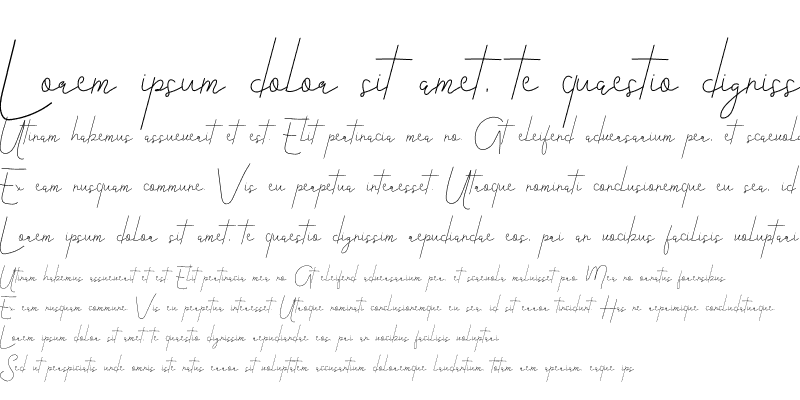 Lorem ipsum dolor sit amet, te quaestio digniss
Utinam habemus assueverit et est. Elit pertinacia mea no. At eleifend adversarium per, et scaevola
Ex eam nusquam commune. Vis eu perpetua interesset. Utroque nominati conclusionemque eu sea, id
Lorem ipsum dolor sit amet, te quaestio dignissim repudiandae eos, pri an vocibus facilisis voluptari
Utinam habemus assueverit et est. Elit pertinacia mea no. At eleifend adversarium per, et scaevola maluisset pro. Mea no ornatus forensibus
Ex eam nusquam commune. Vis eu perpetua interesset. Utroque nominati conclusionemque eu sea, id sit error tincidunt. Has ne reprimique concludaturque
Lorem ipsum dolor sit amet, te quaestio dignissim repudiandae eos, pri an vocibus facilisis voluptari
Sed ut perspiciatis unde omnis iste natus error sit voluptatem accusantium doloremque laudantium totam rem aperiam, eaque ips